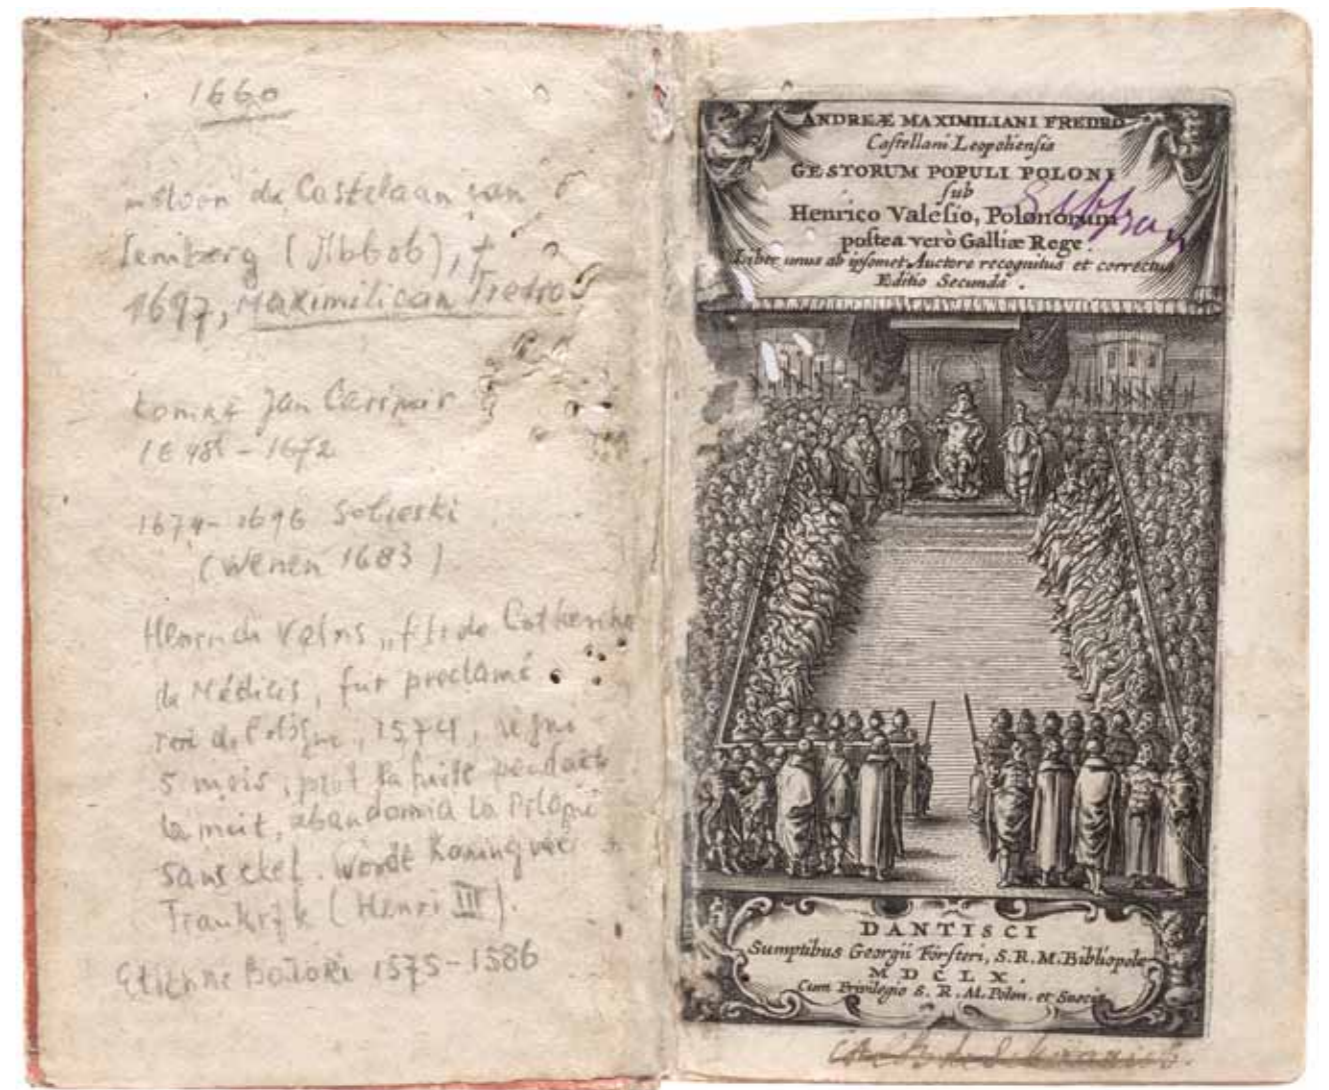 1660
de Castelaan van
Lemberg
1697, Maximiliaan Fredro
koning Jan Casimir
1648 - 1672
1674 - 1696 Sobieski
(Wenen 1683)
Valois, fils de Catherine
de Médicis, fut proclamé
roi de Pologne, 1574, régna
5 mois, prit la fuite pendant
la nuit, abandonna la Pologne
sans chef. Wordt Koning van
Frankrijk (Henri III).
Etienne 1575 - 1586
ANDREÆ MAXIMILIANI FREDRO
Castellani Leopoliensis
GESTORUM POPULI POLONI
sub
Henrico Valesio, Polonorum
postea verò Galliæ Rege.
Liber unus ab ipsomet Auctore recognitus et correctus
Editio Secunda.
DANTISCI
Sumptibus Georgii Försteri, S.R.M. Bibliopolæ
MDCLX.
Cum Privilegio S. R. M. Polon. et Sueciæ